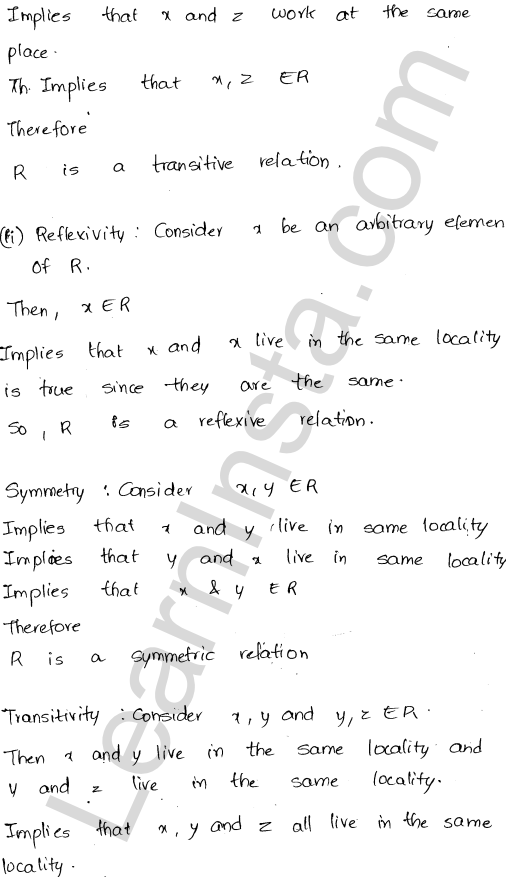 Implies that x and z work at the same
place.
Th. Implies that x, z ∈R
Therefore
R is a transitive relation.
(ii) Reflexivity : Consider x be an arbitrary elemen
of R.
Then, x ∈ R
Implies that x and x live in the same locality
is true since they are the same.
So, R is a reflexive relation.
Symmetry : Consider x, y ∈R
Implies that x and y live in same locality
Implies that y and x live in same locality
Implies that x & y ∈ R
Therefore
R is a symmetric relation
Transitivity : Consider x, y and y, z ∈R.
Then x and y live in the same locality and
y and z live in the same locality.
Implies that x, y and z all live in the same
locality.
LearnInsta.com